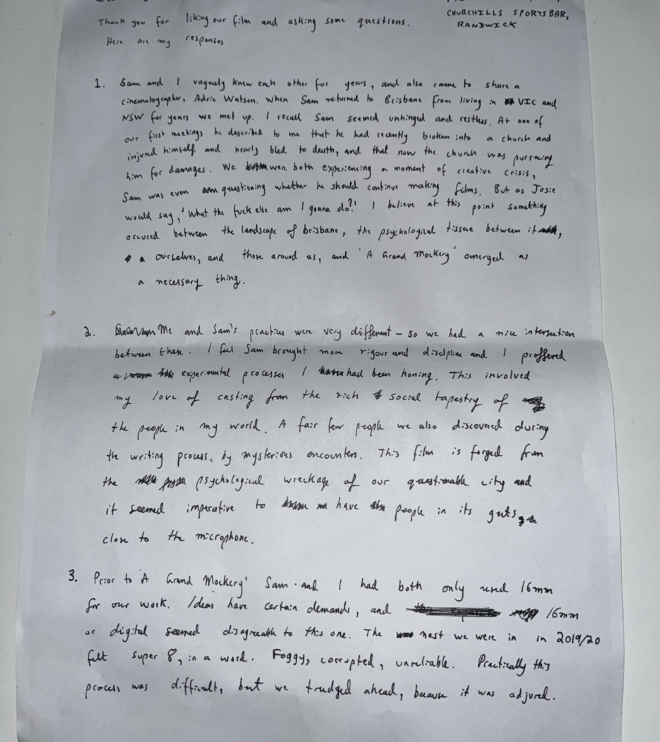 CHURCHILLS SPORTS BAR,
RANDWICK
Thank you for liking our film and asking some questions.
Here are my responses
1. Sam and I vaguely knew each other for years, and also came to share a
cinematographer, Adric Watson. When Sam returned to Brisbane from living in VIC and
NSW for years we met up. I recall Sam seemed unhinged and restless. At one of
our first meetings he described to me that he had recently broken into a church and
injured himself and nearly bled to death, and that now the church was pursuing
him for damages. We were both experiencing a moment of creative crisis,
Sam was even questioning whether he should continue making films. But as Josie
would say, 'What the fuck else am I gonna do?' I believe at this point something
occured between the landscape of brisbane, the psychological tissue between it,
ourselves, and those around us, and 'A Grand Mockery' emerged as
a necessary thing.
2. Me and Sam's practices were very different – so we had a nice intersection
between them. I feel Sam brought more rigour and discipline and I proffered
experimental processes I had been honing. This involved
my love of casting from the rich social tapestry of
the people in my world. A fair few people we also discovered during
the writing process, by mysterious encounters. This film is forged from
the psychological wreckage of our questionable city and
it seemed imperative to have people in its guts
close to the microphone.
3. Prior to 'A Grand Mockery' Sam and I had both only used 16mm
for our work. Ideas have certain demands, and 16mm
or digital seemed disagreeable to this one. The nest we were in in 2019/20
felt super 8, in a word. Foggy, corrupted, unreliable. Practically this
process was difficult, but we trudged ahead, because it was adjured.